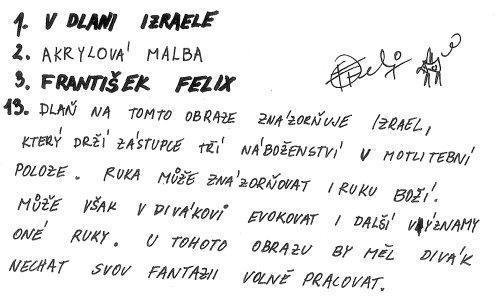 1. V DLANI IZRAELE
2. AKRYLOVÁ MALBA
3. FRANTIŠEK FELIX
13. DLAŇ NA TOMTO OBRAZE ZNÁZORŇUJE IZRAEL,
KTERÝ DRŽÍ ZÁSTUPCE TŘÍ NÁBOŽENSTVÍ V MOTLITEBNÍ
POLOZE. RUKA MŮŽE ZNÁZORŇOVAT I RUKU BOŽÍ.
MŮŽE VŠAK V DIVÁKOVI EVOKOVAT I DALŠÍ VÝZNAMY
ONÉ RUKY. U TOHOTO OBRAZU BY MĚL DIVÁK
NECHAT SVOU FANTAZII VOLNĚ PRACOVAT.